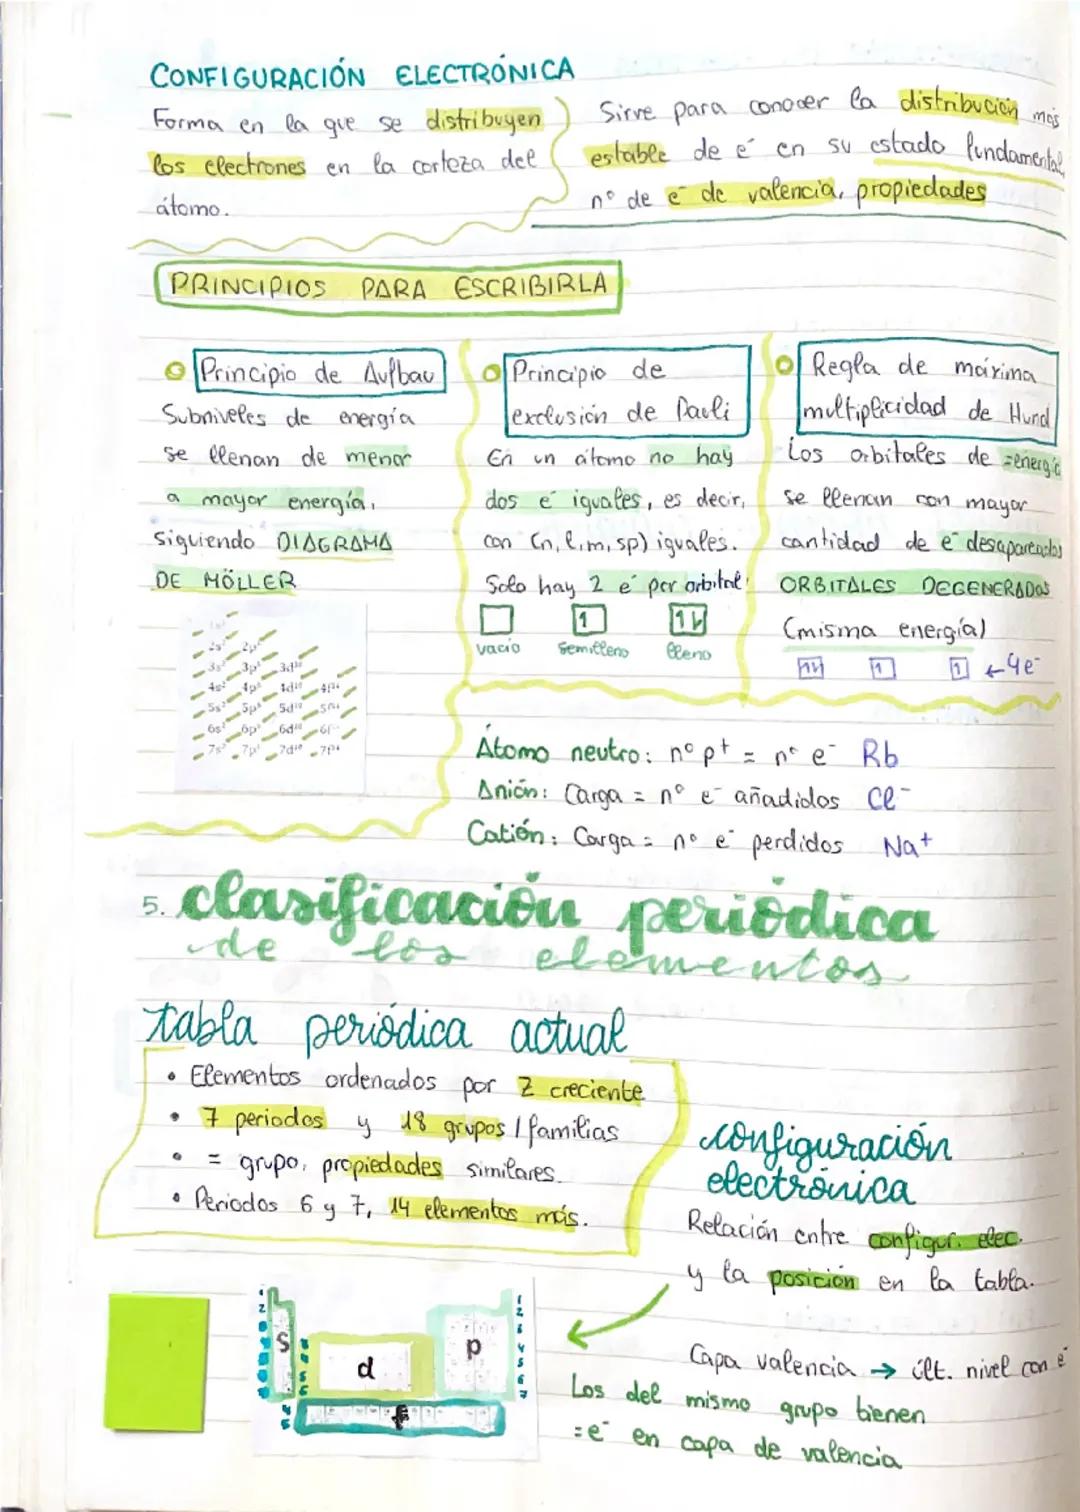 CONFIGURACIÓN ELECTRÓNICA
Forma en la que se distribuyen
los electrones en la corteza del
átomo.
Sirve para conocer la distribución más
estable de e⁻ en su estado fundamental,
nº de e⁻ de valencia, propiedades
PRINCIPIOS PARA ESCRIBIRLA
Principio de Aufbau
Subniveles de energía
se llenan de menor
a mayor energía,
siguiendo DIAGRAMA
DE MÖLLER
1s²
2s² 2p⁶
3s² 3p⁶ 3d¹⁰
4s² 4p⁶ 4d¹⁰ 4f¹⁴
5s² 5p⁶ 5d¹⁰ 5f¹⁴
6s² 6p⁶ 6d¹⁰ 6f¹⁴
7s² 7p⁶ 7d¹⁰ 7f¹⁴
Principio de
exclusión de Pauli
En un átomo no hay
dos e⁻ iguales, es decir,
con (n, l, m, sp) iguales.
Solo hay 2 e⁻ por orbital
vacío semilleno lleno
Regla de máxima
multiplicidad de Hund
Los orbitales de =energía
se llenan con mayor
cantidad de e⁻ desapareados
ORBITALES DEGENERADOS
(misma energía)
←4e⁻
Átomo neutro: nº p⁺ = nº e⁻ Rb
Anión: Carga = nº e⁻ añadidos Cl⁻
Catión: Carga = nº e⁻ perdidos Na⁺
5. clasificación periódica
de los elementos
tabla periódica actual
• Elementos ordenados por Z creciente
• 7 periodos y 18 grupos / familias
• = grupo, propiedades similares.
• Periodos 6 y 7, 14 elementos más.
configuración
electrónica
Relación entre configur. elec.
y la posición en la tabla.
s d p f
Capa valencia → últ. nivel con e⁻
Los del mismo grupo tienen
=e⁻ en capa de valencia